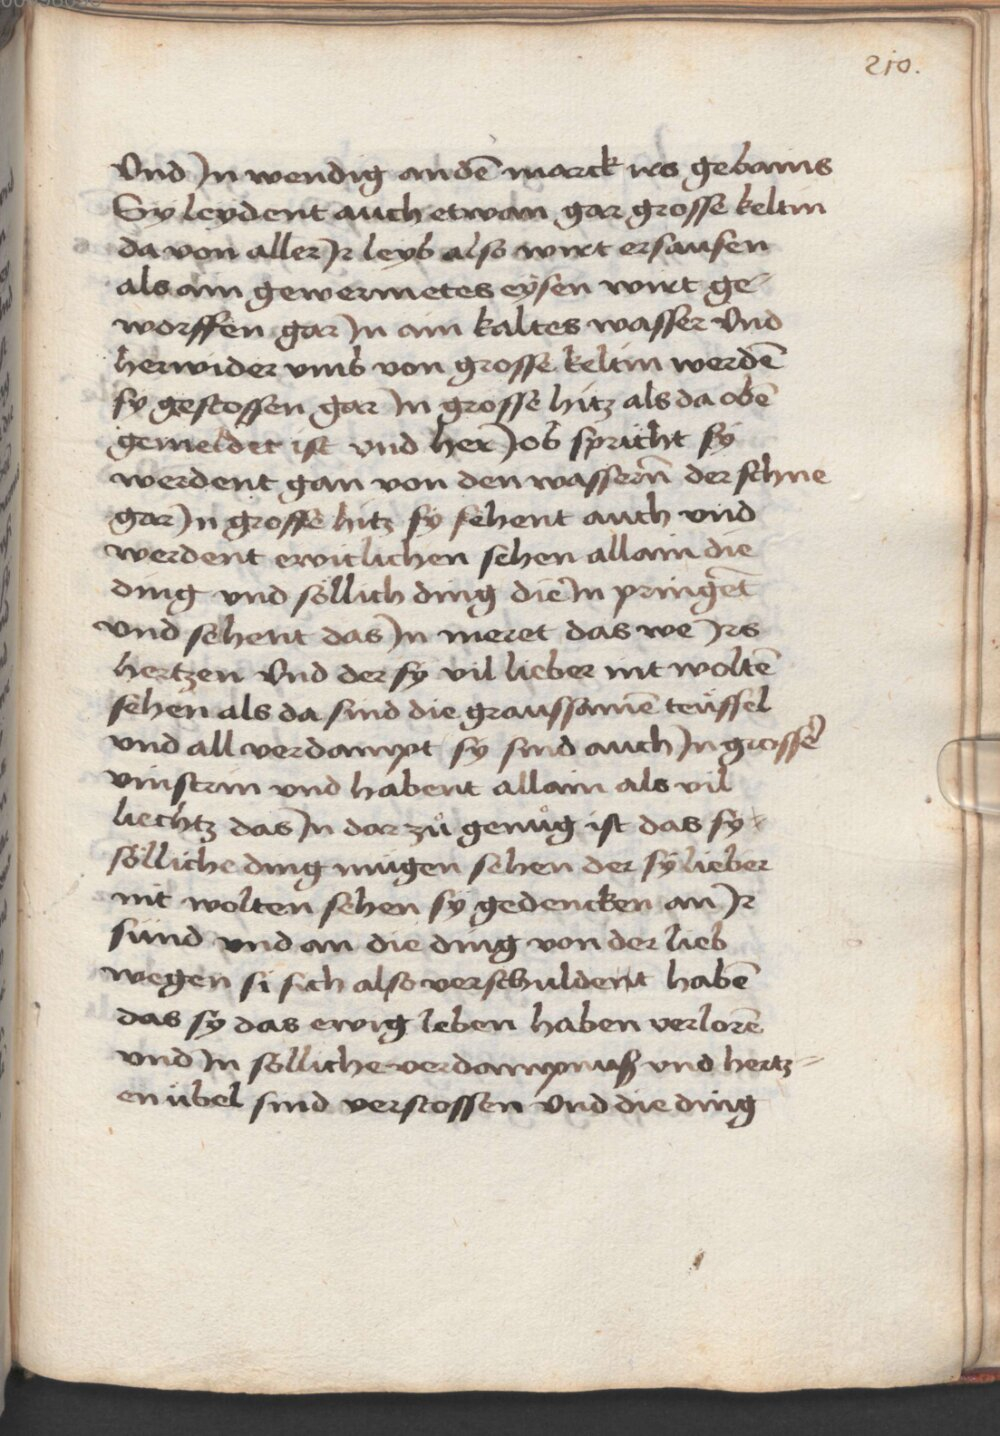 210.
Vnd Jn wendig an dē marck irs gebains
Sy leydent auch etwan gar grosse keltin
da von aller Jr leyb also wirt ersausen
als ain gewermetes eysen wirt ge-
worffen gar Jn ain kaltes wasser Vnd
herwider vmb von grosse keltin werdē
sy gestossen gar Jn grosse hitz als da obē
gemeldet ist vnd her Job spricht sy
werdent gan von den wassern̄ der schne
gar Jn grosse hitz sy sehent auch vnd
werdent ewicliichen sehen allain die
ding vnd söllich ding die Jn pringēt
Vnd sehent das Jn meret das we Jrs
hertzen Vnd der sy vil lieber nit woltē
sehen als da sind die graussamē teüffel
vnd all verdampt sy sind auch Jn grosser
vinstrin vnd habent allain als vil
liechtz das Jn dar zů genůg ist das sy
sölliche ding mügen sehen der sy lieber
nit wolten sehen sy gedencken an Jr
sünd vnd an die ding von der lieb
wegen si sich also verschuldent habē
das sy das ewig leben haben verlorē
vnd Jn sölliche verdampnuß vnd hertz-
en übel sind verstossen Vnd die ding